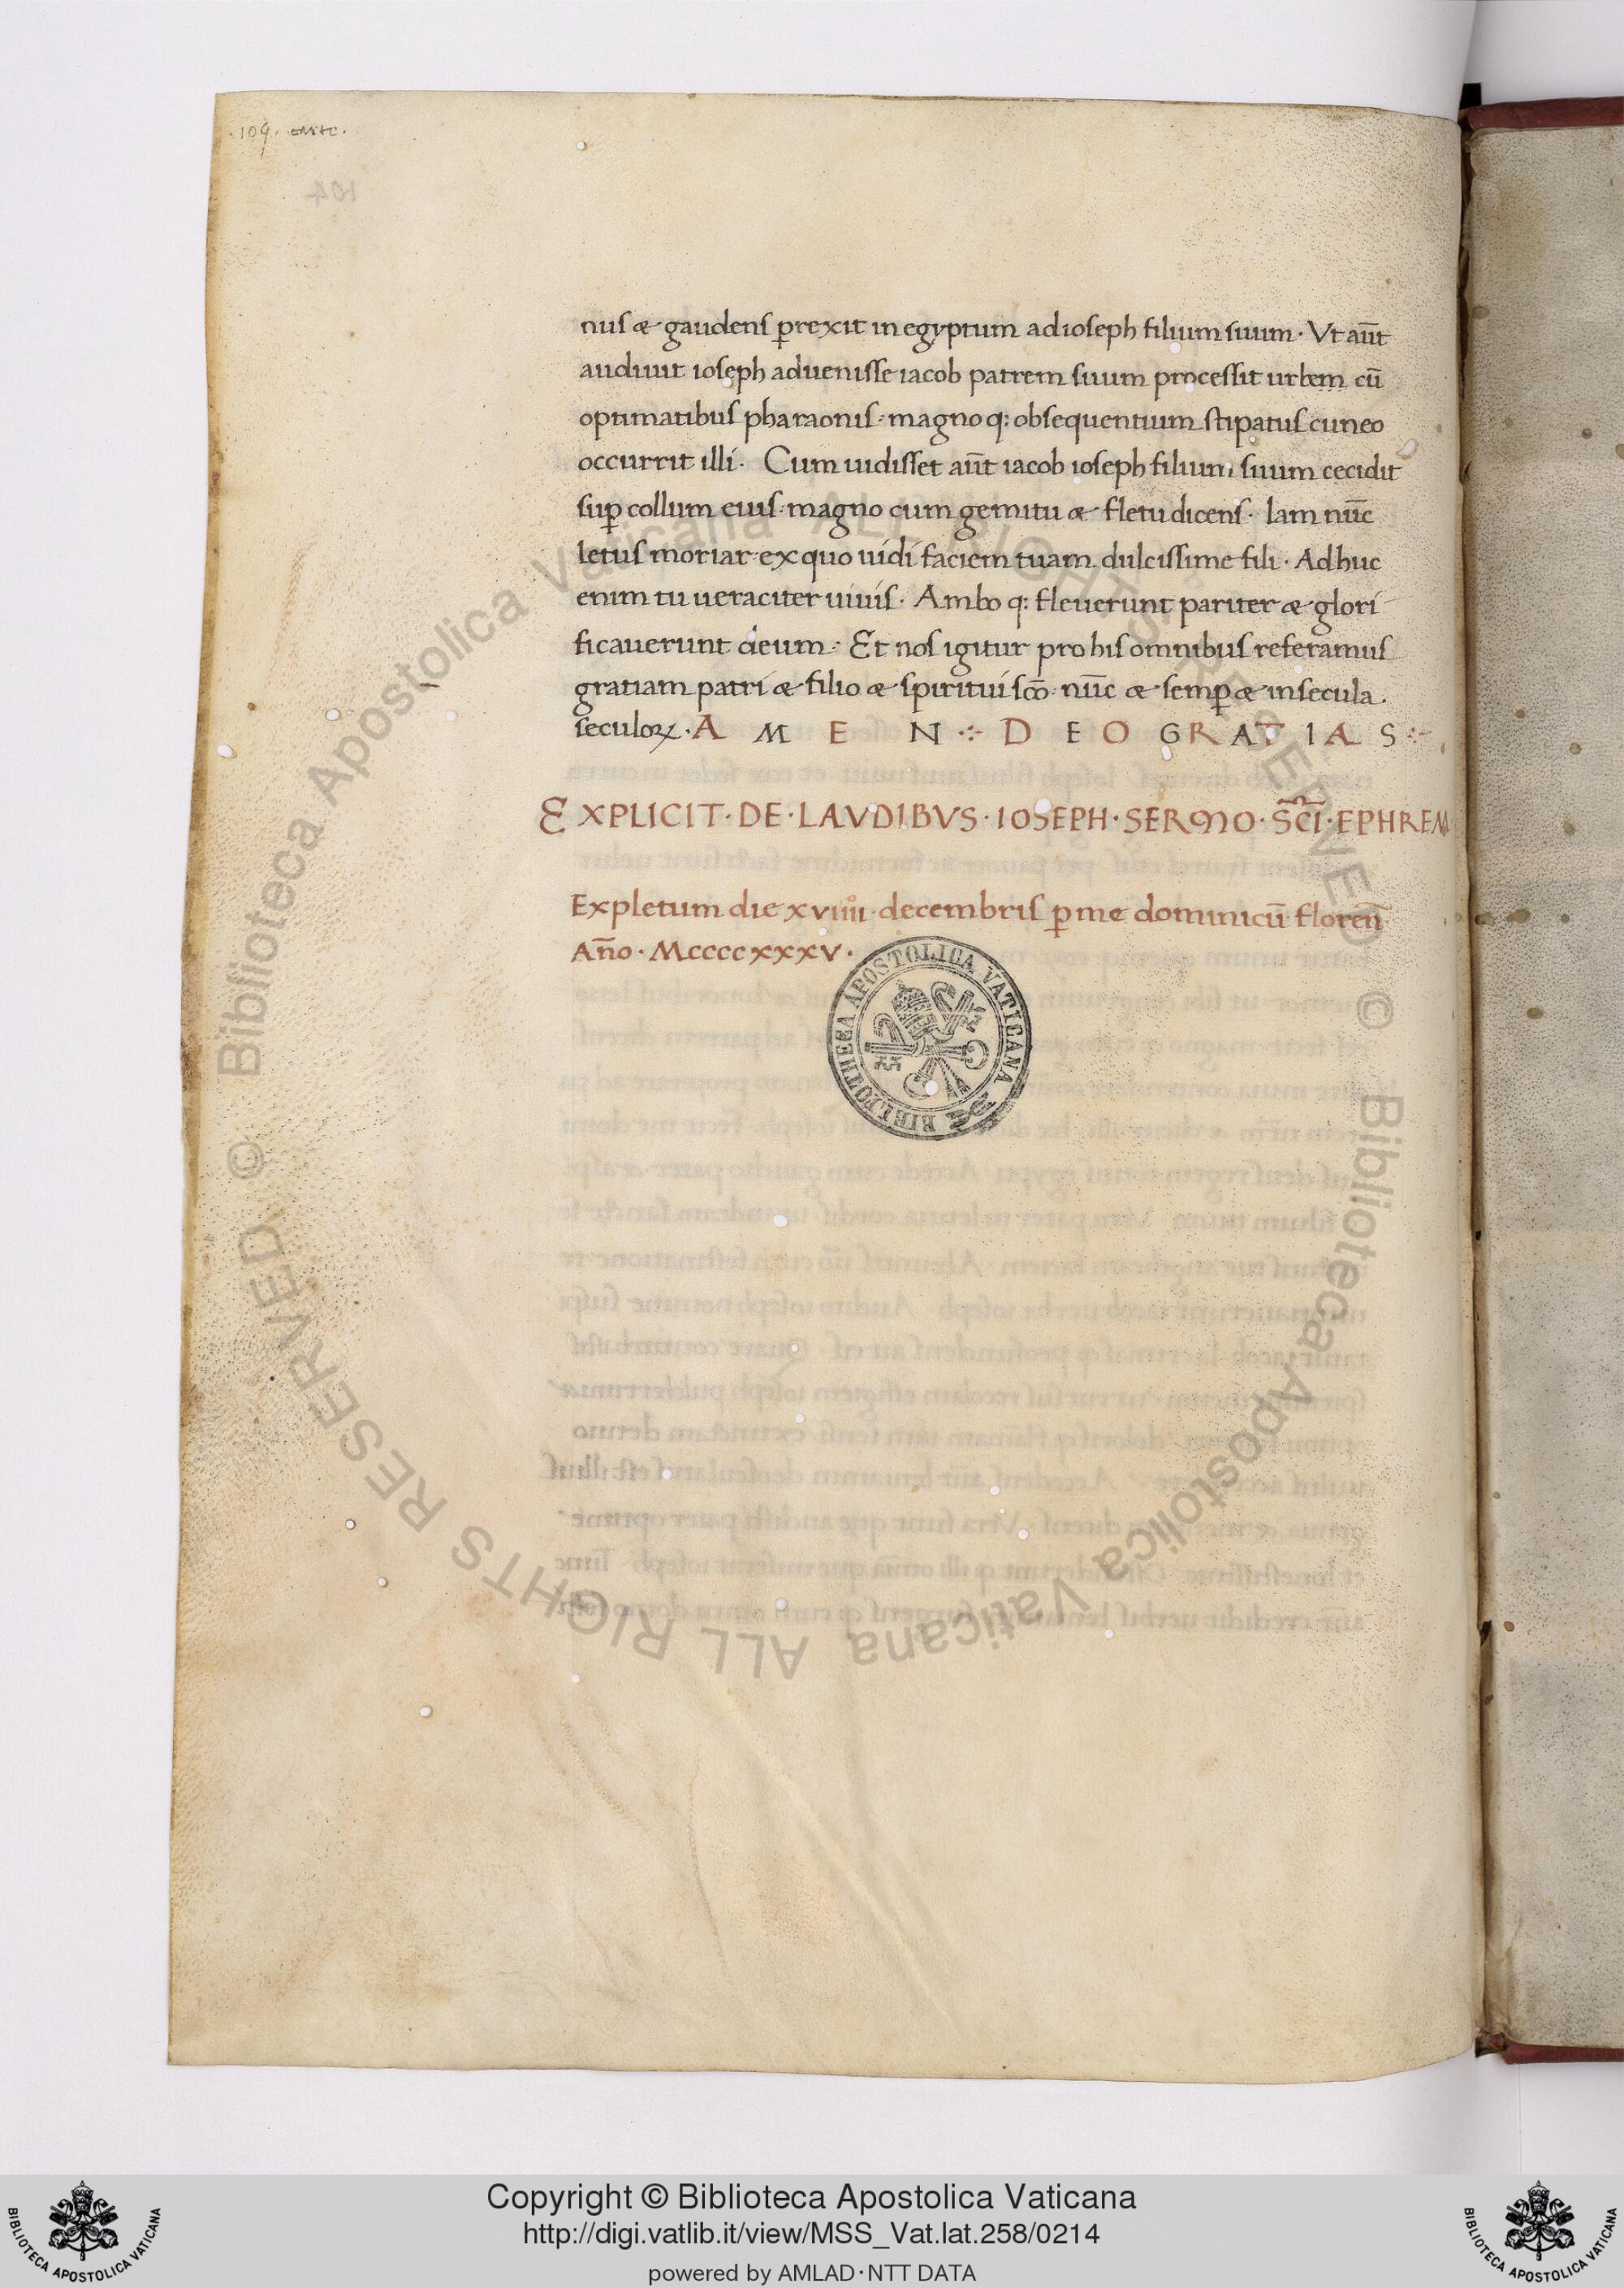 .109. carte.
104
nus & gaudens ꝑrexit in egyptum ad ioseph filium suum · Vt aūt
audiuit ioseph aduenisse iacob patrem suum processit urbem cū
optimatibus pharaonis · magno q: obsequentium stipatus cuneo
occurrit illi · Cum uidisset aūt iacob ioseph filium suum cecidit
suꝑ collum eius · magno cum gemitu & fletu dicens · Iam nūc
letus moriar · ex quo uidi faciem tuam dulcissime fili · Adhuc
enim tu ueraciter uiuis · Ambo q: fleuerunt pariter & glori
ficauerunt deum · Et nos igitur pro his omnibus referamus
gratiam patri & filio & spiritui sc̄o · nūc & semꝑ & in secula .
seculoꝝ · A M E N ·:· D E O G R A T I A S ·:·
EXPLICIT · DE · LAVDIBVS · IOSEPH · SERMO · SC̄I · EPHREM
Expletum die xviiii · decembris ꝑ me dominicū floren̄
An̄o · Mccccxxxv ·
BIBLIOTHECA APOSTOLICA VATICANA
© Biblioteca Apostolica Vaticana ALL RIGHTS RESERVED
© Biblioteca Apostolica Vaticana ALL RIGHTS RESERVED
Copyright © Biblioteca Apostolica Vaticana
http://digi.vatlib.it/view/MSS_Vat.lat.258/0214
powered by AMLAD·NTT DATA
BIBLIOTECA APOSTOLICA VATICANA
BIBLIOTECA APOSTOLICA VATICANA